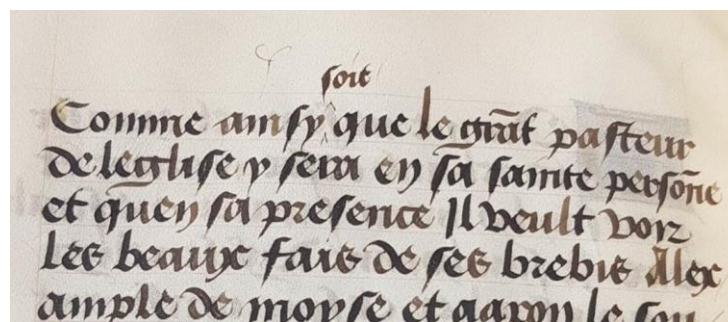 soit
Comme ainsy que le grāt pasteur
de leglise y sera en sa sainte persōne
et quen sa presence Il veult voir
les beaux fais de ses brebis A lex
ample de moyse et aaron le sou